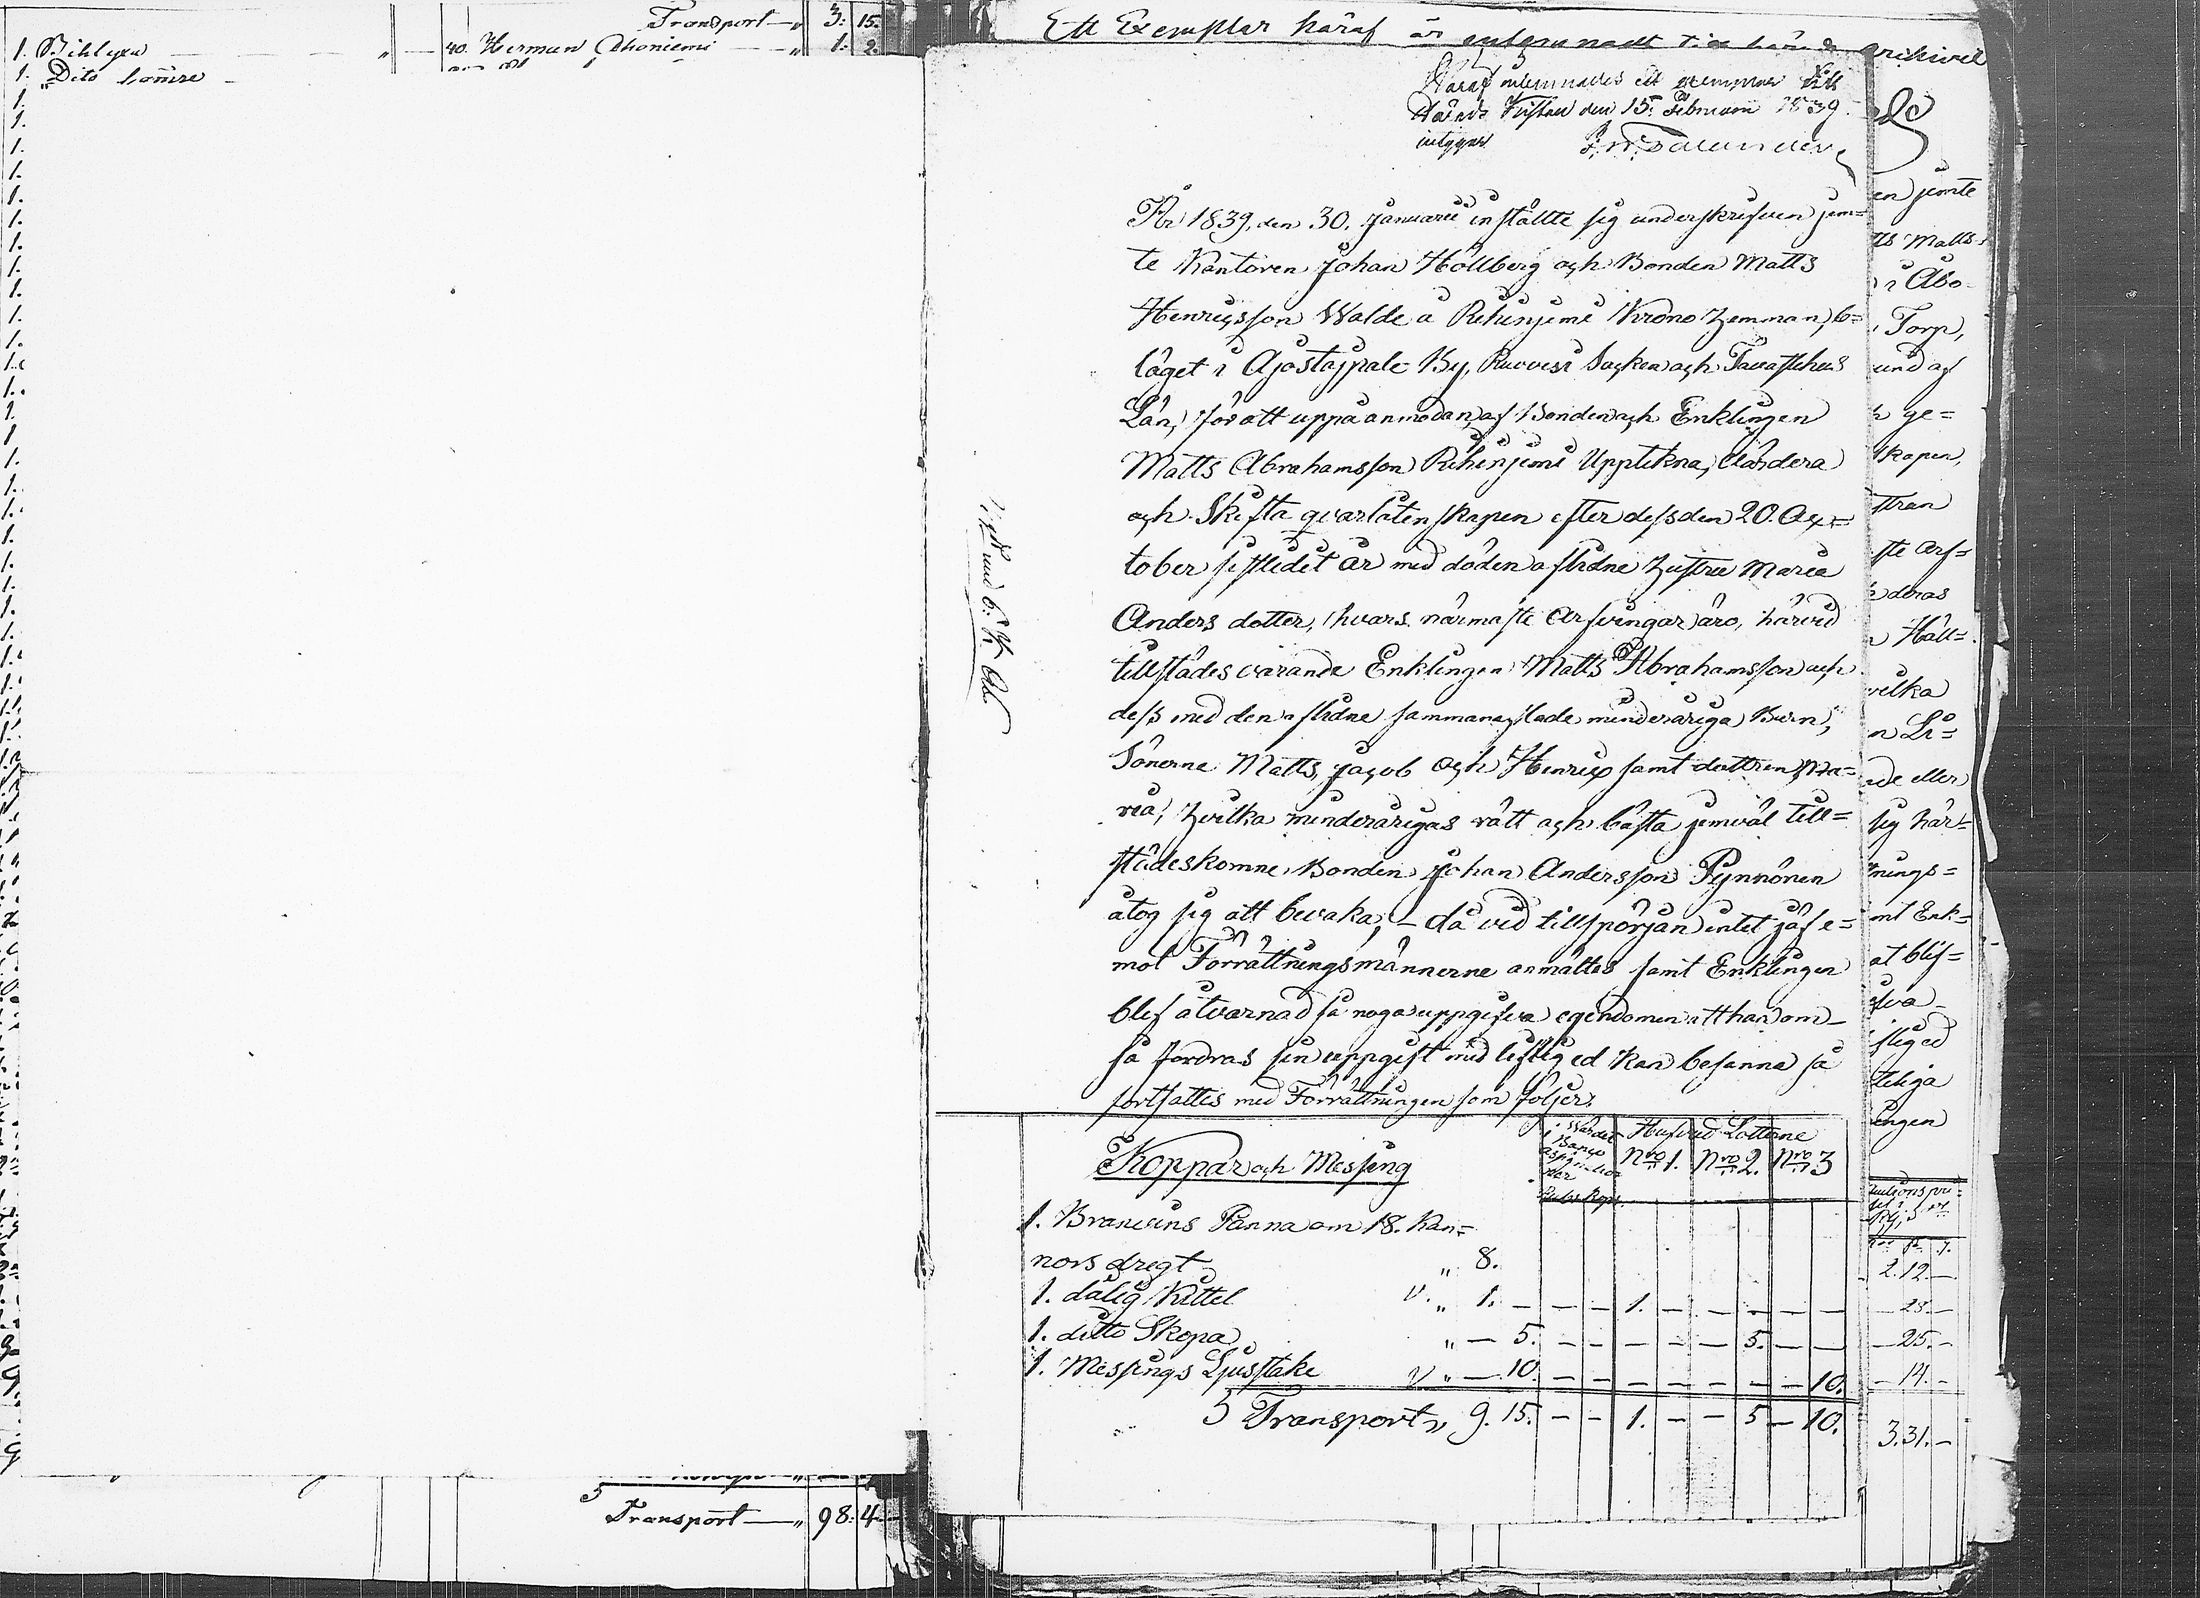 Transport — „ 3: 15.
1. Bihlyxa „ — 40. Herman Ahoniemi — „ 1: 2.
1. Dito sämre
Transport — „ 98: 4
Ett Exemplar häraf är
Häraf ett exemplar till
Härads Kistan den 15. Februarii 1839.
intygar
År 1839, den 30. Januarii instälte sig underskrifven jem=
te Kantoren Johan Hållberg och Bonden Matts
Henricsson Walde å Pihinjemi Krono Hemman, be=
läget i Äjostajpale By, Ruovesi Socken och Tavastehus
Län, för att uppå anmodan af Bonden och Enklingen
Matts Abrahamsson Pihinjemi Upptekna, Värdera
och Skifta qvarlåtenskapen efter dess den 20. Oc=
tober sistledit år med döden aflidne Hustru Maria
Anders dotter, hvars närmaste Arfvingar äro, härvid
tillstädes varande Enklingen Matts Abrahamsson och
dess med den aflidne sammanaflade minderåriga Barn,
Sönerne Matts, Jacob och Henric samt dottren Ma=
ria, hvilka minderårigas rätt och bästa jemväl till=
städeskomne Bonden Johan Andersson Pynnönen
åtog sig att bevaka; — då vid tillspörjan intet jäf e=
mot Förrättningsmännerne anmältes samt Enklingen
blef åtvarnad så noga uppgifva egendomen att han om
så fordras sin uppgift med liflig ed kan besanna så
fortsattes med Förrättningen som följer.
Koppar och Messing
Värdet i Banco
Rub. Kop.
Hufvud Lotterne
Nro 1. Nro 2. Nro 3
1. Branvins Panna om 18. Kan=
nors dregt „ 8.
1. dålig Kittel V. „ 1. — — — 1. — — — — —
1. ditto Skopa „ — 5. — — — — — 5. — —
1. Messings Ljusstake V „ — 10. — — — — — — — 10.
5 Transport „ 9. 15. — — 1. — — 5 — 10.
en jemte
Matts
i Åbo
Torp,
und af
ge=
skapen,
stran
ste Arf=
deras
Håll=
vilka
n Li=
ade eller
sig här=
nings=
mt Enk=
at blif=
ifva
flig ed
teliga
ingen
2. 12. —
— 25. —
— 25. —
— 14. —
3. 31. —